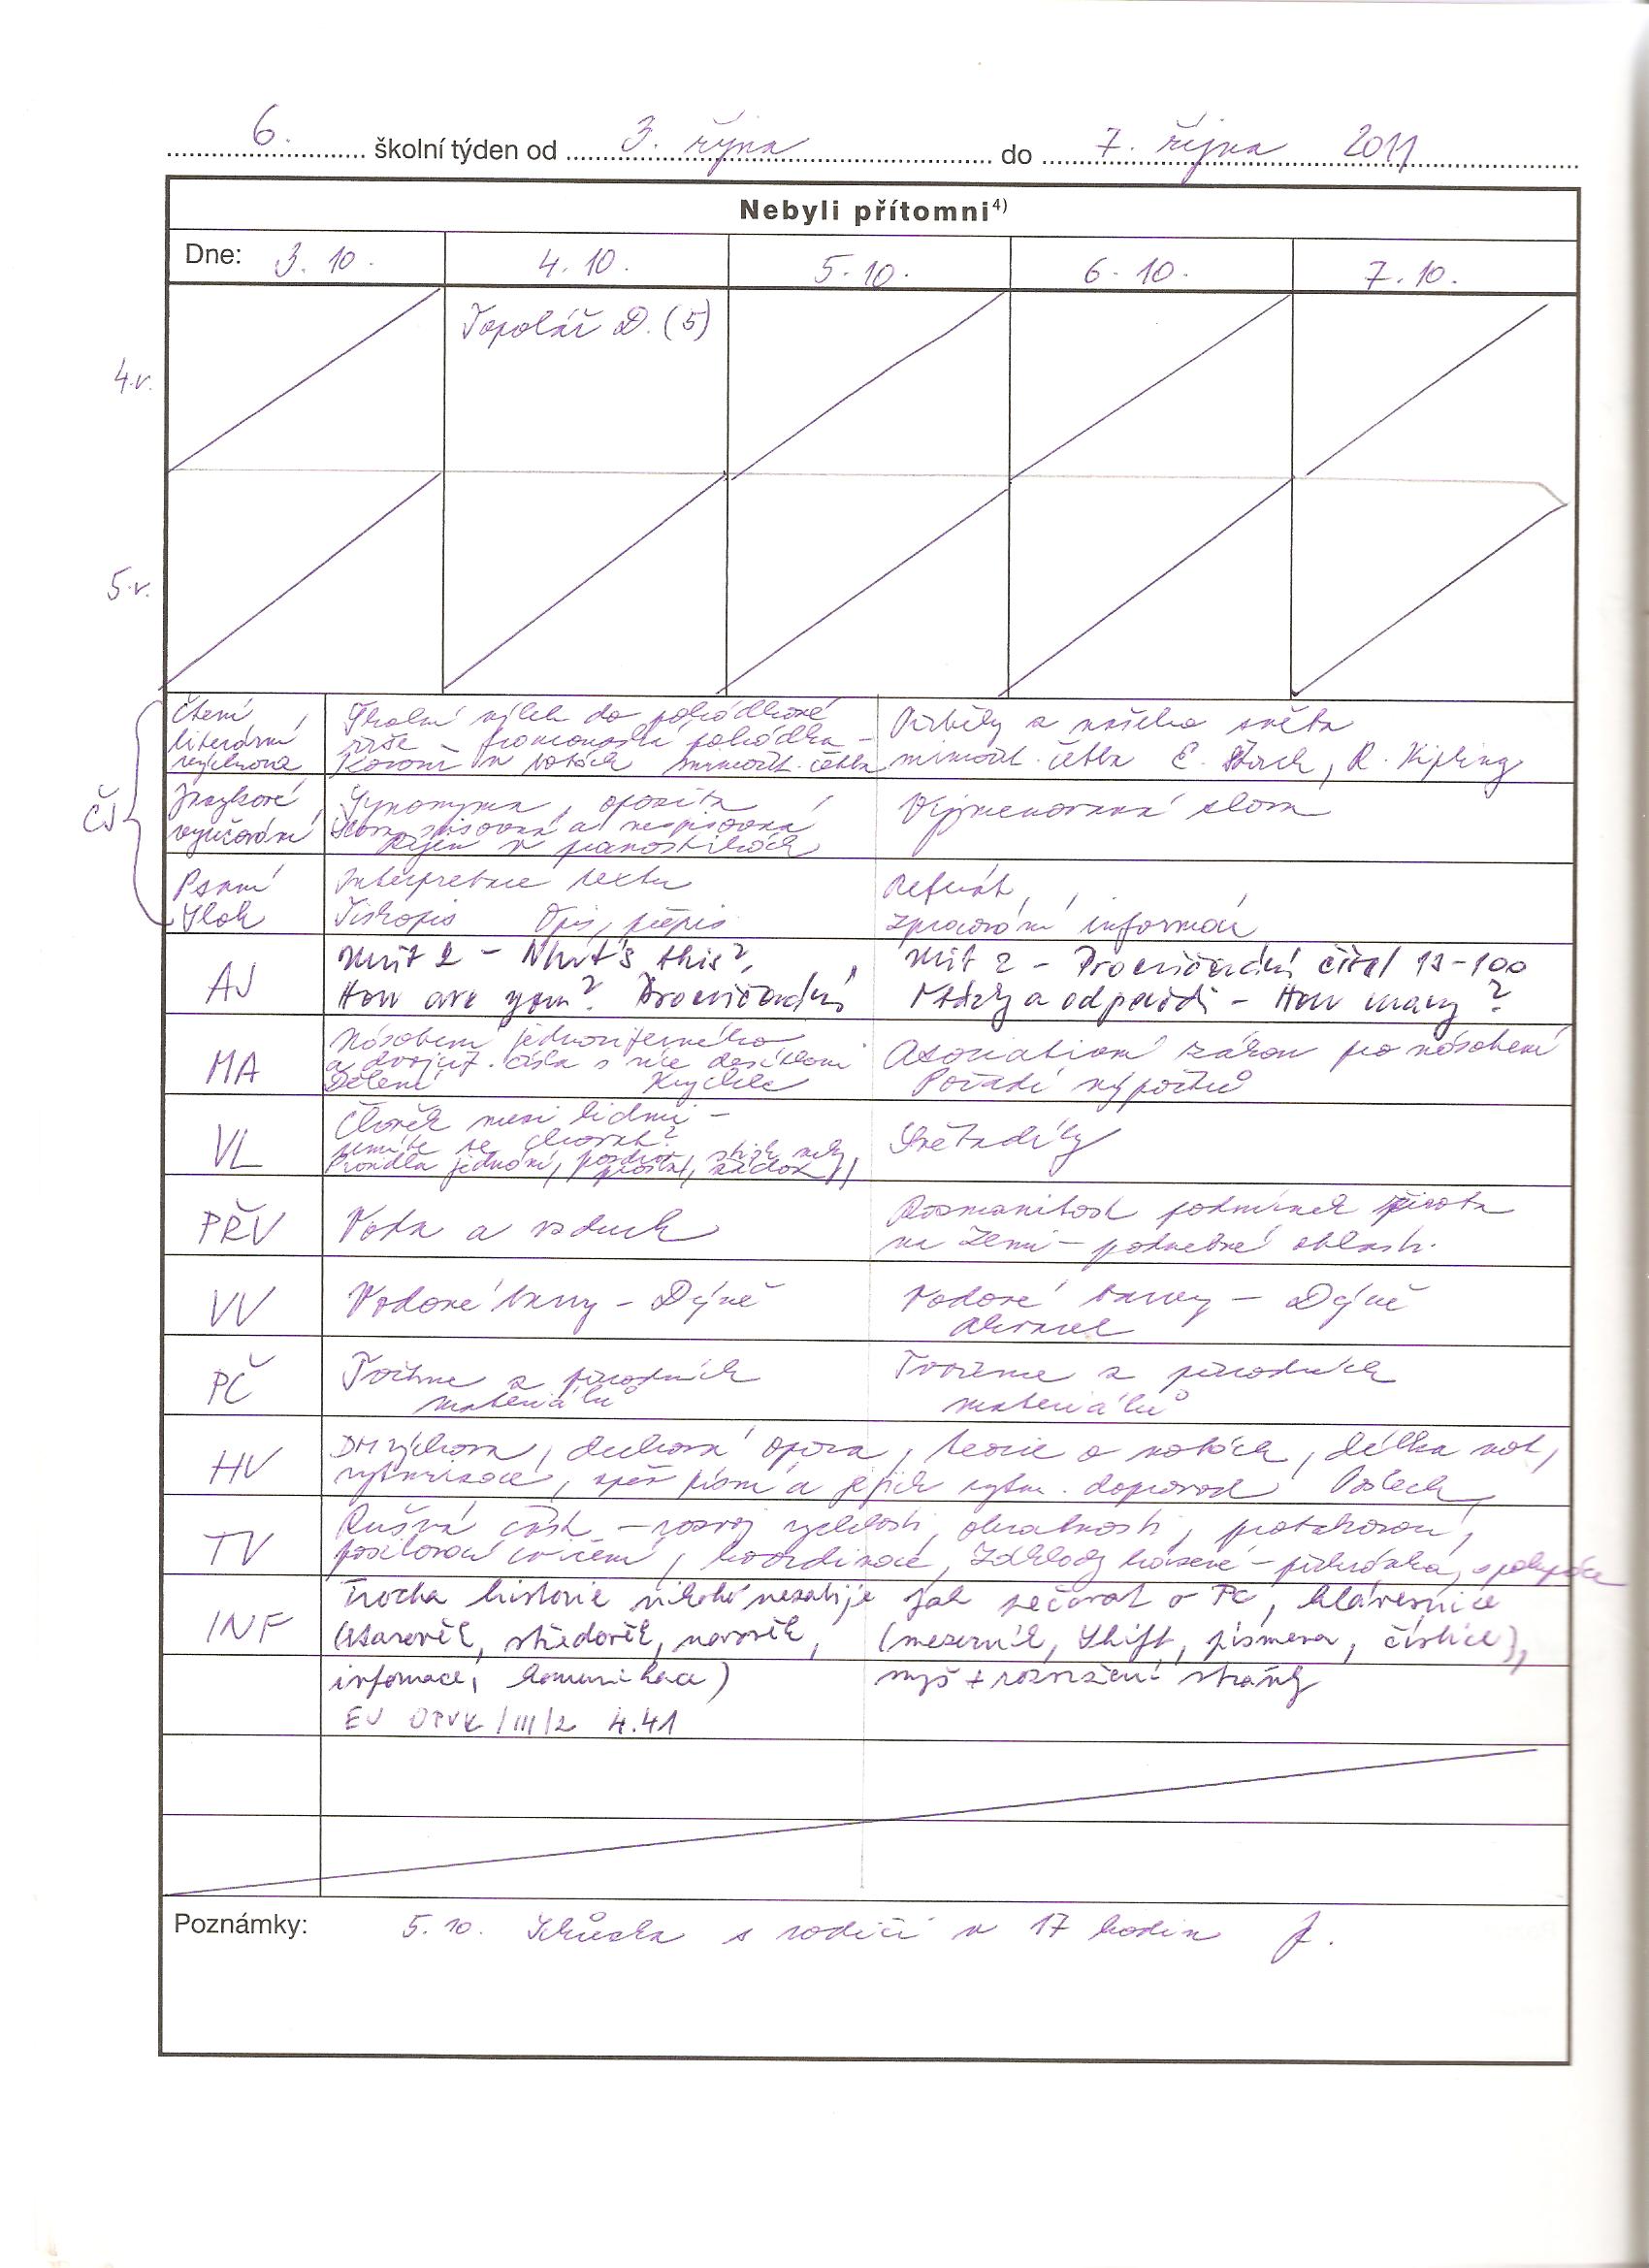 6. školní týden od 3. října do 7. října 2011
Nebyli přítomni⁴⁾
Dne: 3. 10. 4. 10. 5. 10. 6. 10. 7. 10.
Topolář D. (5)
4.r.
5.r.
ČJ
Čtení
literární
výchova
Školní výlet do pohádkové
říše – pohádka –
v botách mimočít. četba
Příběhy z našeho světa
mimočít. četba E. Štorch, R. Kipling
Jazykové
vyučování
Synonyma, opozita
Slova spisovná a nespisovná
Říjen v pranostikách
Vyjmenovaná slova
Psaní
Sloh
Interpretace textu
Tiskopis Opis, přepis
Referát,
zpracování informací
AJ
Unit 2 – What's this?,
How are you? Procvičování
Unit 2 – Procvičování čísel 13–100
Otázky a odpovědi – How many?
MA
Násobení jednociferného
a dvojcif. čísla s více desítkami
Dělení Krychle
Asociativní zákon pro násobení
Pořadí výpočtů
VL
Člověk mezi lidmi –
umíte se chovat?
Pravidla jednání, pozdrav,
Světadíly
PŘV
Voda a vzduch
Rozmanitost podmínek života
na Zemi – podnebné oblasti.
VV
Vodové barvy – Dýně
Vodové barvy – Dýně
PČ
Tvoříme z přírodních
materiálů
Tvoříme z přírodních
materiálů
HV
výchova, dechová opora, teorie o notách, délka not,
rytmizace, zpěv písní a jejich rytm. doprovod Poslech
TV
Rušná část – rozvoj rychlosti, obratnosti, protahovací,
posilovací cvičení, koordinace, základy házené – přihrávka,
INF
Trocha historie nikoho nezabije
(starověk, středověk, novověk,
informace, komunikace)
EU OPVK/III/2 4.41
Jak pečovat o PC, klávesnice
(mezerník, Shift, písmena, číslice),
myš + rozvržení strany
Poznámky: 5. 10. Schůzka s rodiči v 17 hodin